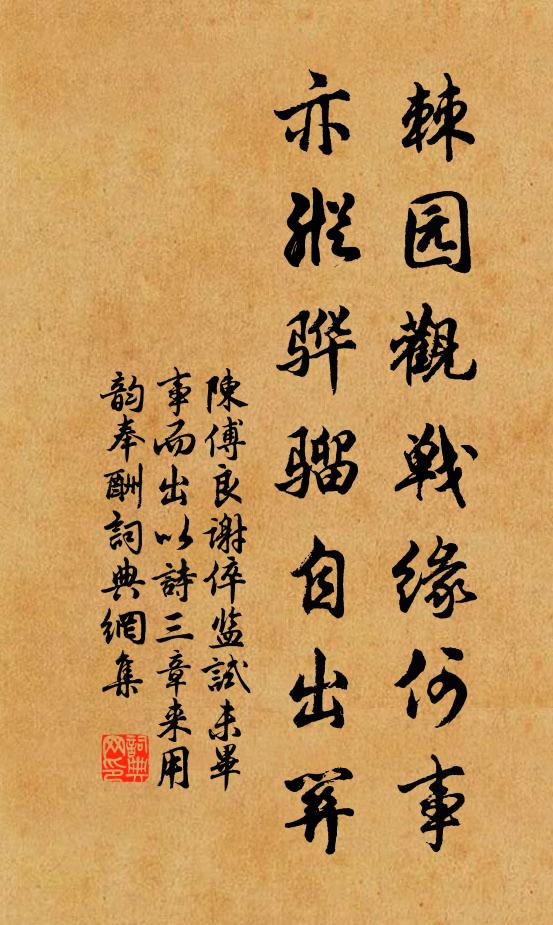 棘园觀戦缘何事
亦縱骅骝自出
陳傅良谢倅监試未畢
事而出以詩三章来用
韵奉酬詞典網集
詞典网印